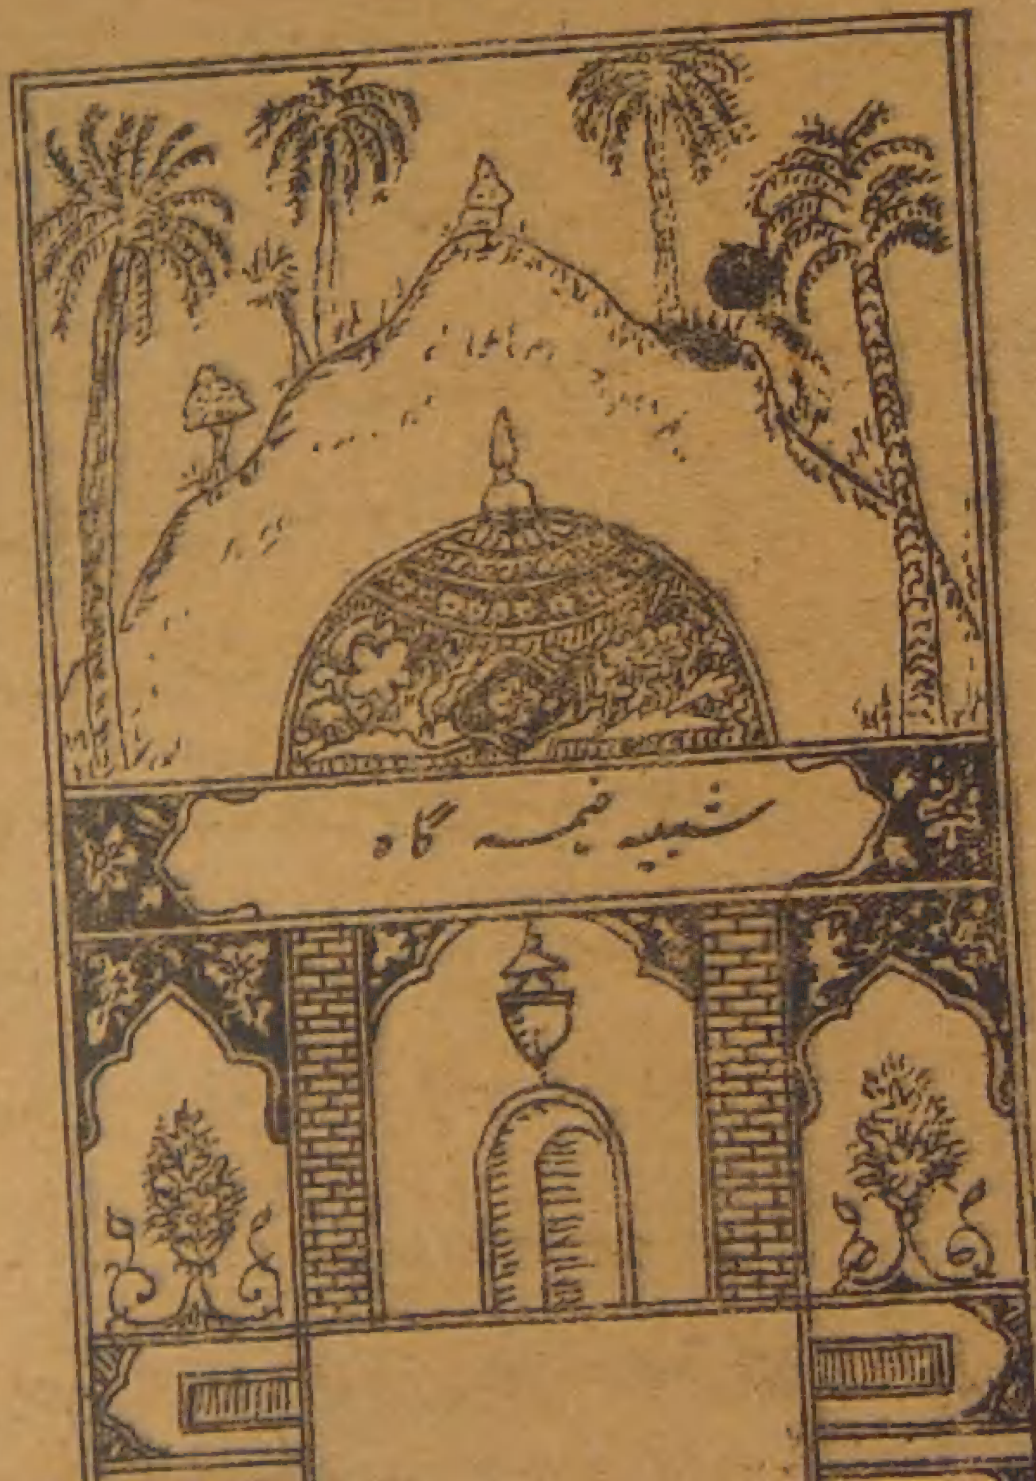 شبیہ خیمہ گاہ